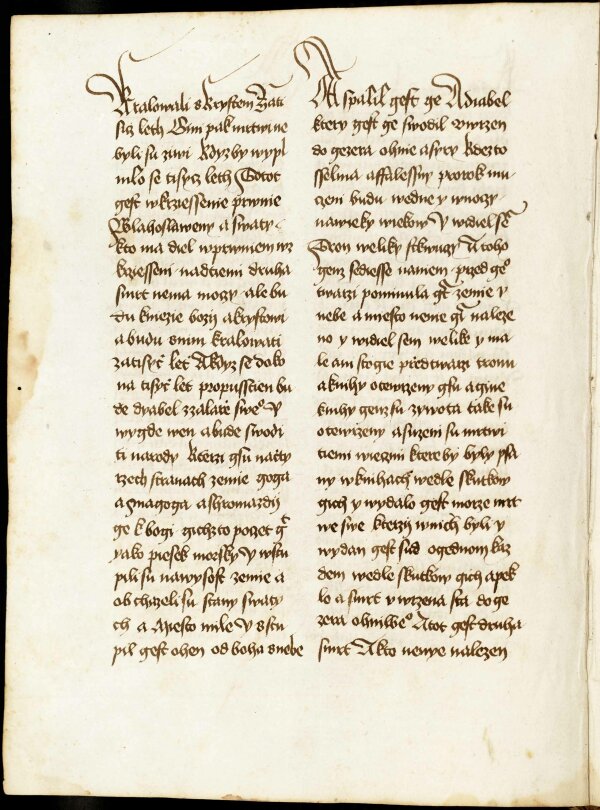 Kralowali s krystem Zati
sicz leth Gini pak mrtwi ne
byli su ziwi kdyzby wypl
nilo se tisycz leth Totot
gest wkrziessenie prwnie
Blahoslaweny a swaty
kto ma diel wprwniem wz
krziesseni nadtiemi druha
smrt nema mozy ale bu
du kniezie bozij a krystowi
a budu snim kralowati
zatisycz let A kdyz se doko
na tisycz let propusstien bu
de dyabel zzalarze sweo V
wygde wen a bude swodi
ti narody kterzi gsu nacty
rzech stranach zemie goga
a magoga a shromazdij
ge k bogi gichzto poczet gt
yako piesek morsky V wstu
pili su nawysost zemie a
obchazeli su stany swaty
ch a miesto mile V sstu
pil gest ohen od boha snebe
A spalil gest ge A diabel
ktery gest ge swodil vwrzen
do gezera ohnie asyry kdezto
sselma affalessny prorok mu
czeni budu wedne y wnoczy
nawieky wiekow V widiel se
Tron weliky skwuczy A toho
genz sediesse naniem przed geo
twarzi pominula gt zemie y
nebe a miesto nenie gt naleze
no y widiel sem welike y ma
le ani stogie przed twarzi tronu
a knihy otewrzeny gsu a gine
knihy genz su zywota take su
otewrzeny a suzeni su mrtwi
tiemi wiezmi ktere by byly psa
ny wknihach wedle skutkow
gich y wydalo gest morze mrt
we swe kterzij wnich byli y
wydan gest sud ogednom kaz
dem wedle skutkow gich a pek
lo a smrt vwrzena sta do ge
zera ohniweo Atot gest druha
smrt A kto nenye nalezen